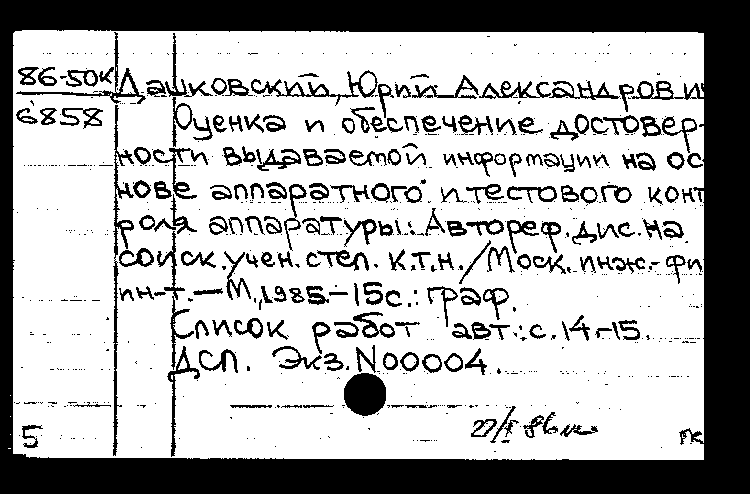 86-50к Дашковский, Юрий Александрови
6858 Оценка и обеспечение достовер-
ности выдаваемой информации на ос
нове аппаратного и тестового конт
роля аппаратуры: Автореф. дис. на
соиск. учен. степ. к.т.н./Моск. инж.-фи
ин-т. — М., 1985. — 15с.: граф.
Список работ авт.: с. 14-15.
ДСП. Экз. N00004.
5 пк